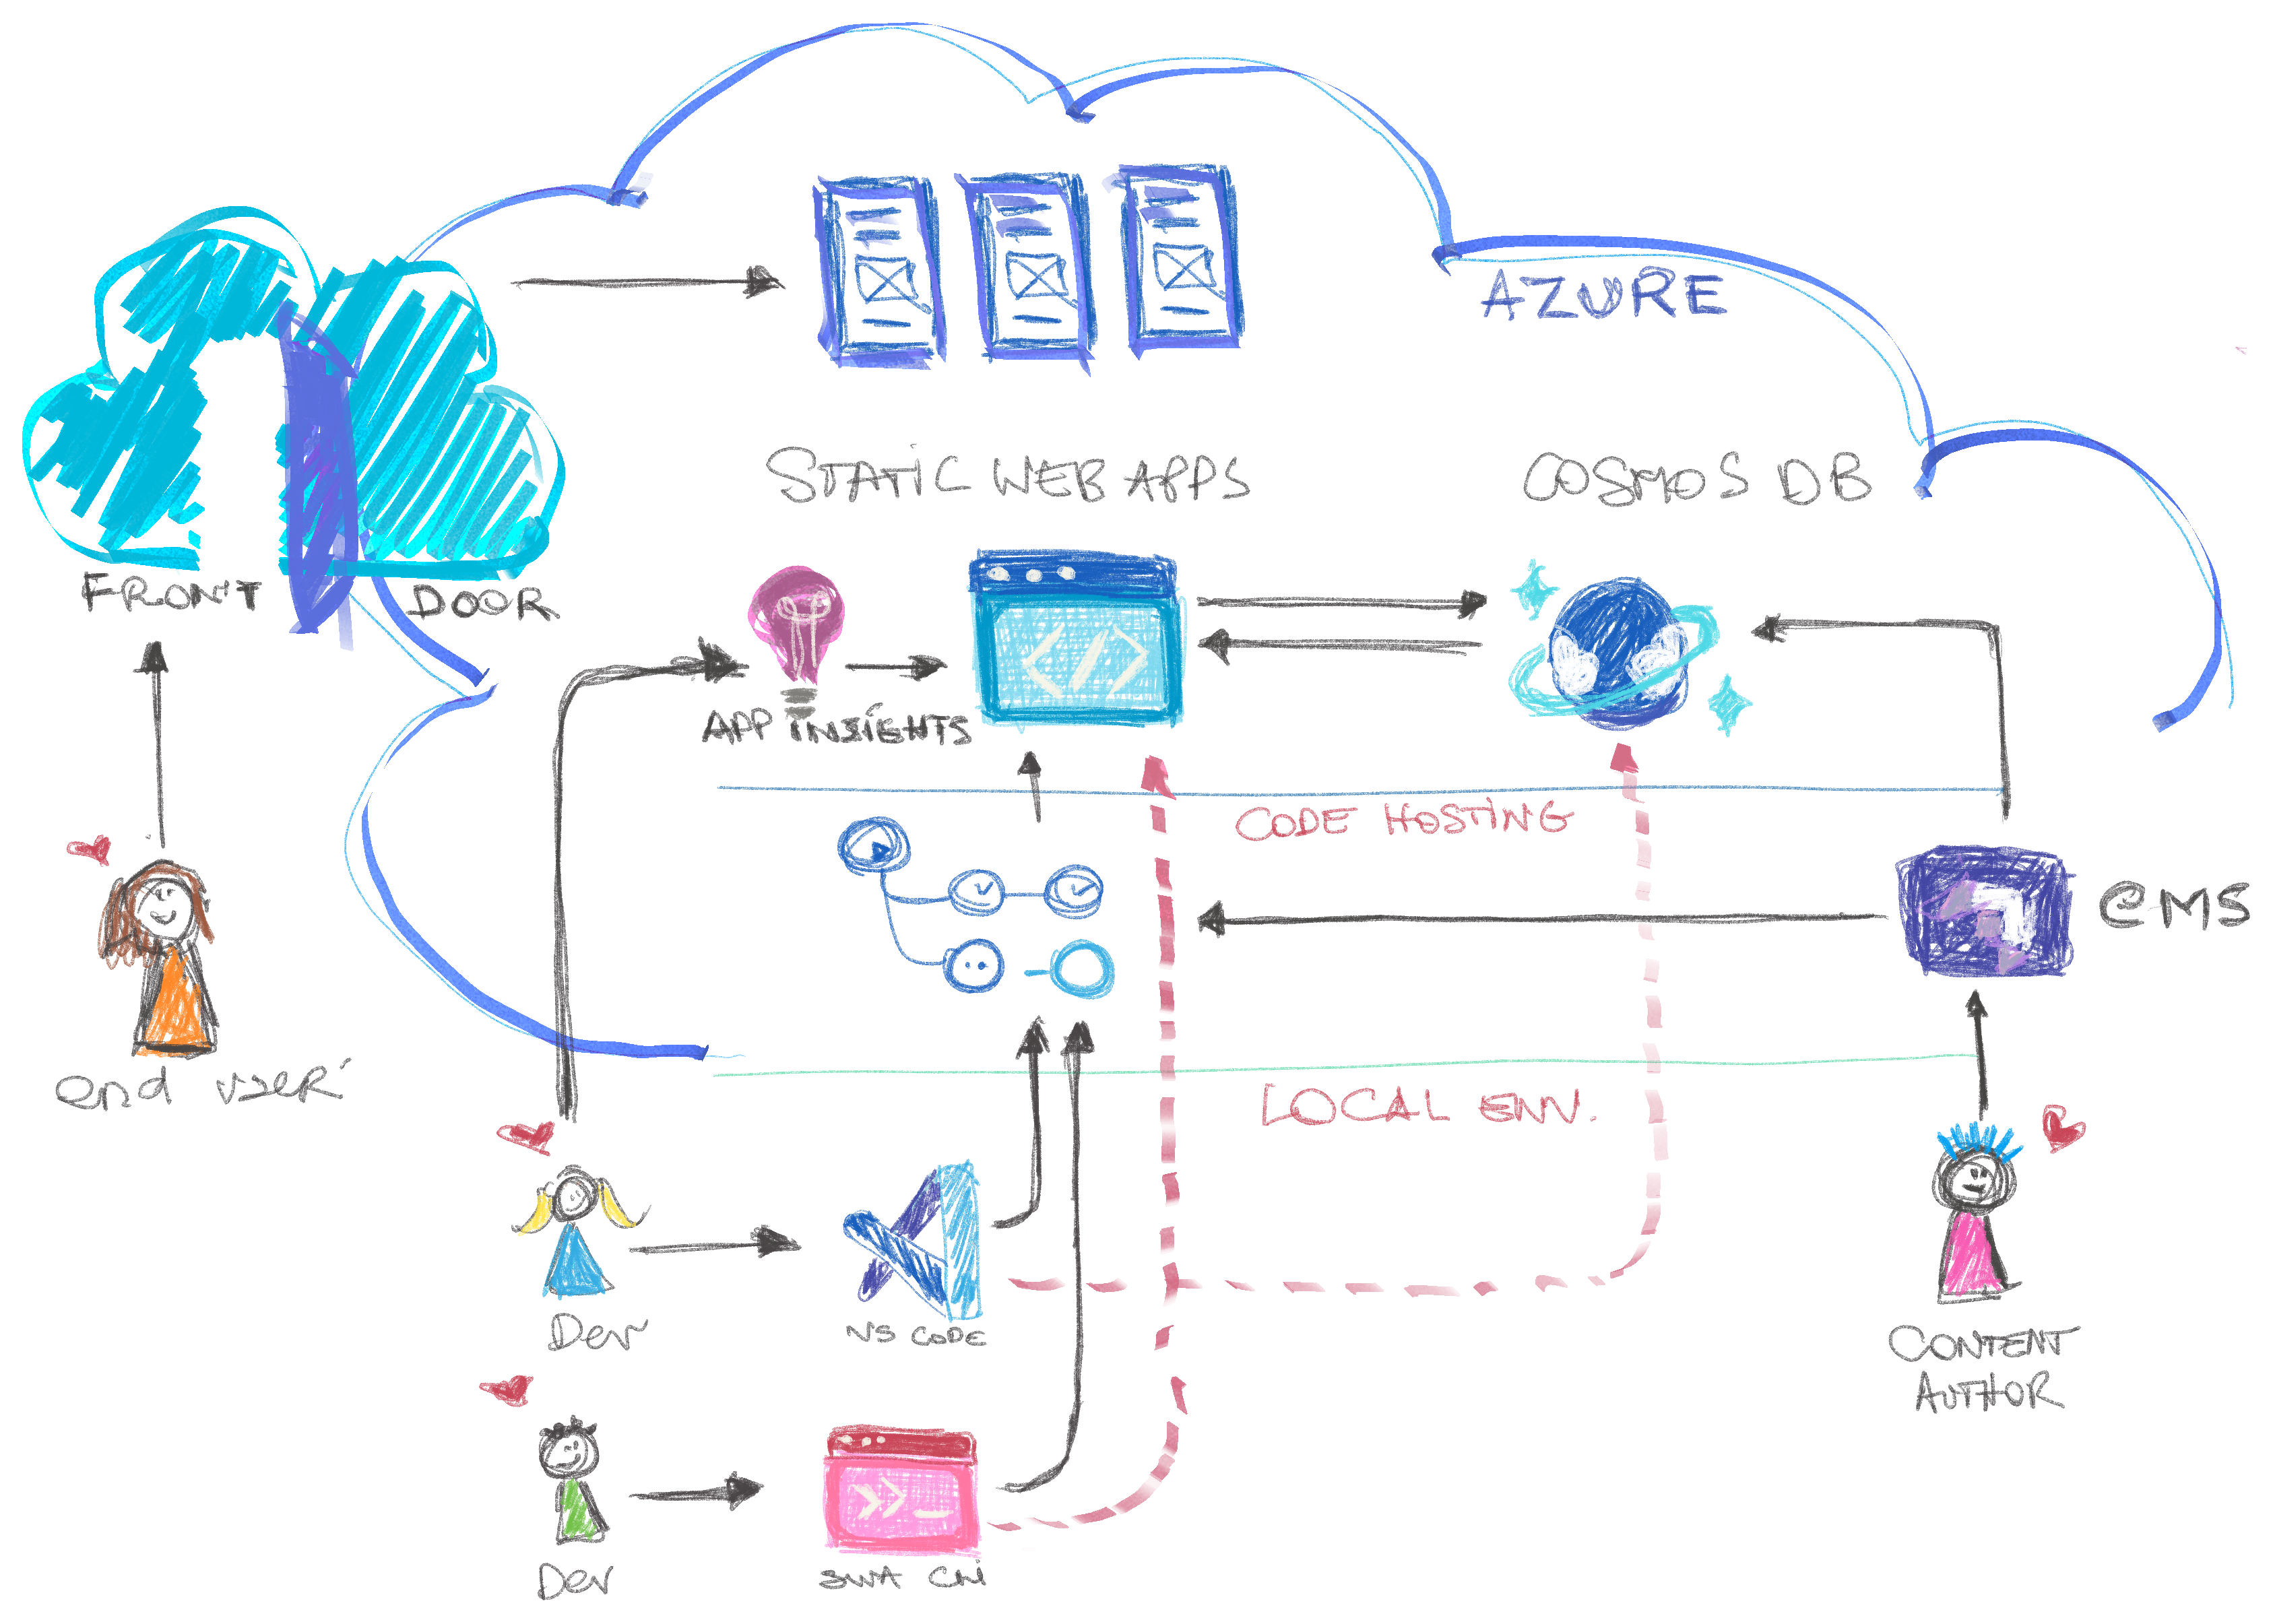 AZURE
STATIC WEB APPS
COSMOS DB
FRONT DOOR
APP INSIGHTS
CODE HOSTING
CMS
end user
LOCAL ENV.
Dev
VS CODE
CONTENT
AUTHOR
Dev
SWA CLI